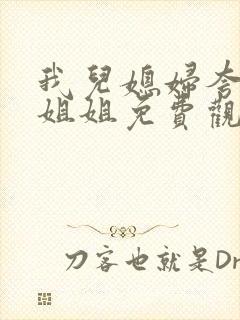 我兒媳婦夸
姐姐免費觀
刀客也就是Dr